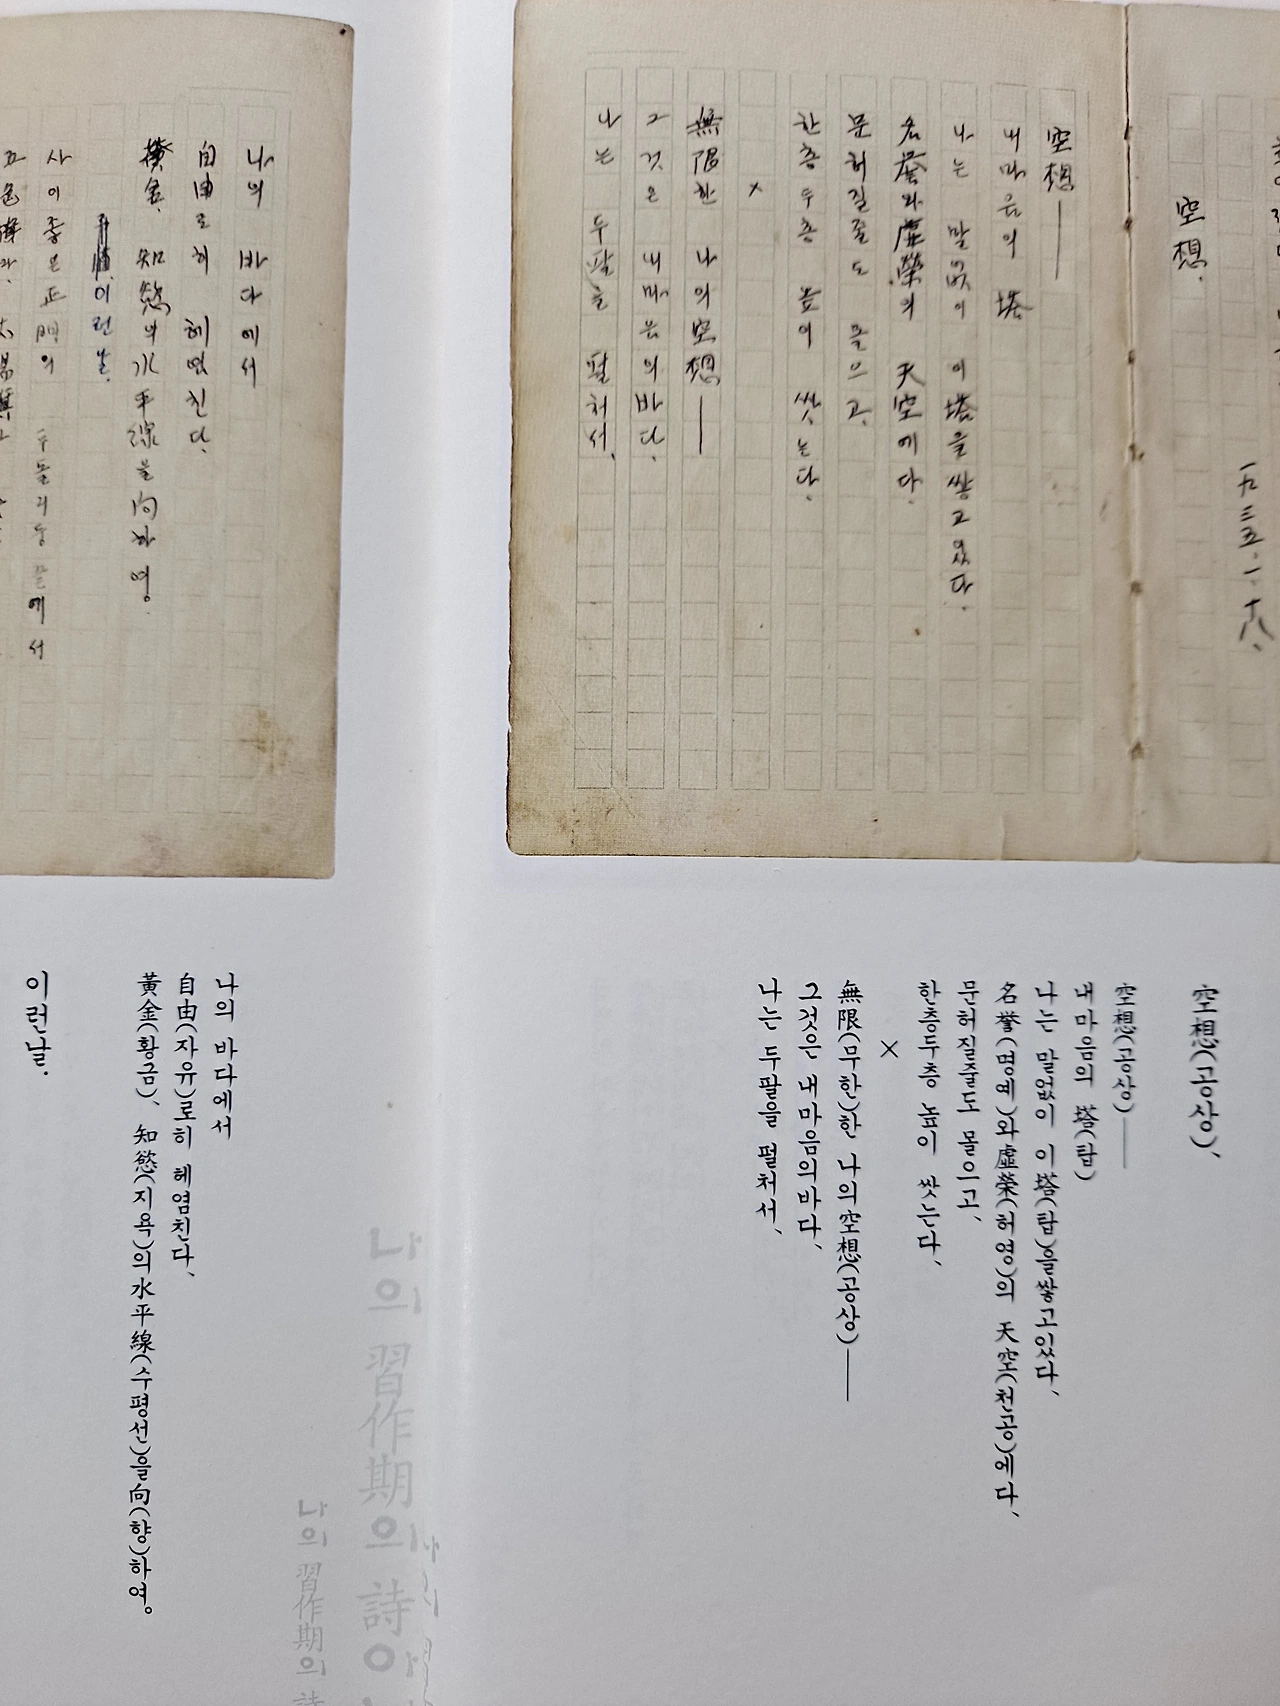 一九三五、一、十八、
空想、
空想——
내마음의 塔
나는 말없이 이塔을쌓고있다、
名誉와虛榮의 天空에다、
문허질줄도 몰으고、
한층두층 높이 쌋는다、
×
無限한 나의空想——
그것은 내마음의바다、
나는 두팔을 펼처서、
나의 바다에서
自由로히 헤염친다、
黃金、知慾의水平線을向하여。
이런날、
사이좋은正門의 두돌긔둥끝에서
空想(공상)、
空想(공상)——
내마음의 塔(탑)
나는 말없이 이塔(탑)을쌓고있다、
名誉(명예)와虛榮(허영)의 天空(천공)에다、
문허질줄도 몰으고、
한층두층 높이 쌋는다、
×
無限(무한)한 나의空想(공상)——
그것은 내마음의바다、
나는 두팔을 펼처서、
나의 바다에서
自由(자유)로히 헤염친다、
黃金(황금)、知慾(지욕)의水平線(수평선)을向(향)하여。
이런날.
나의 習作期의 詩아
나의 習作期의 詩